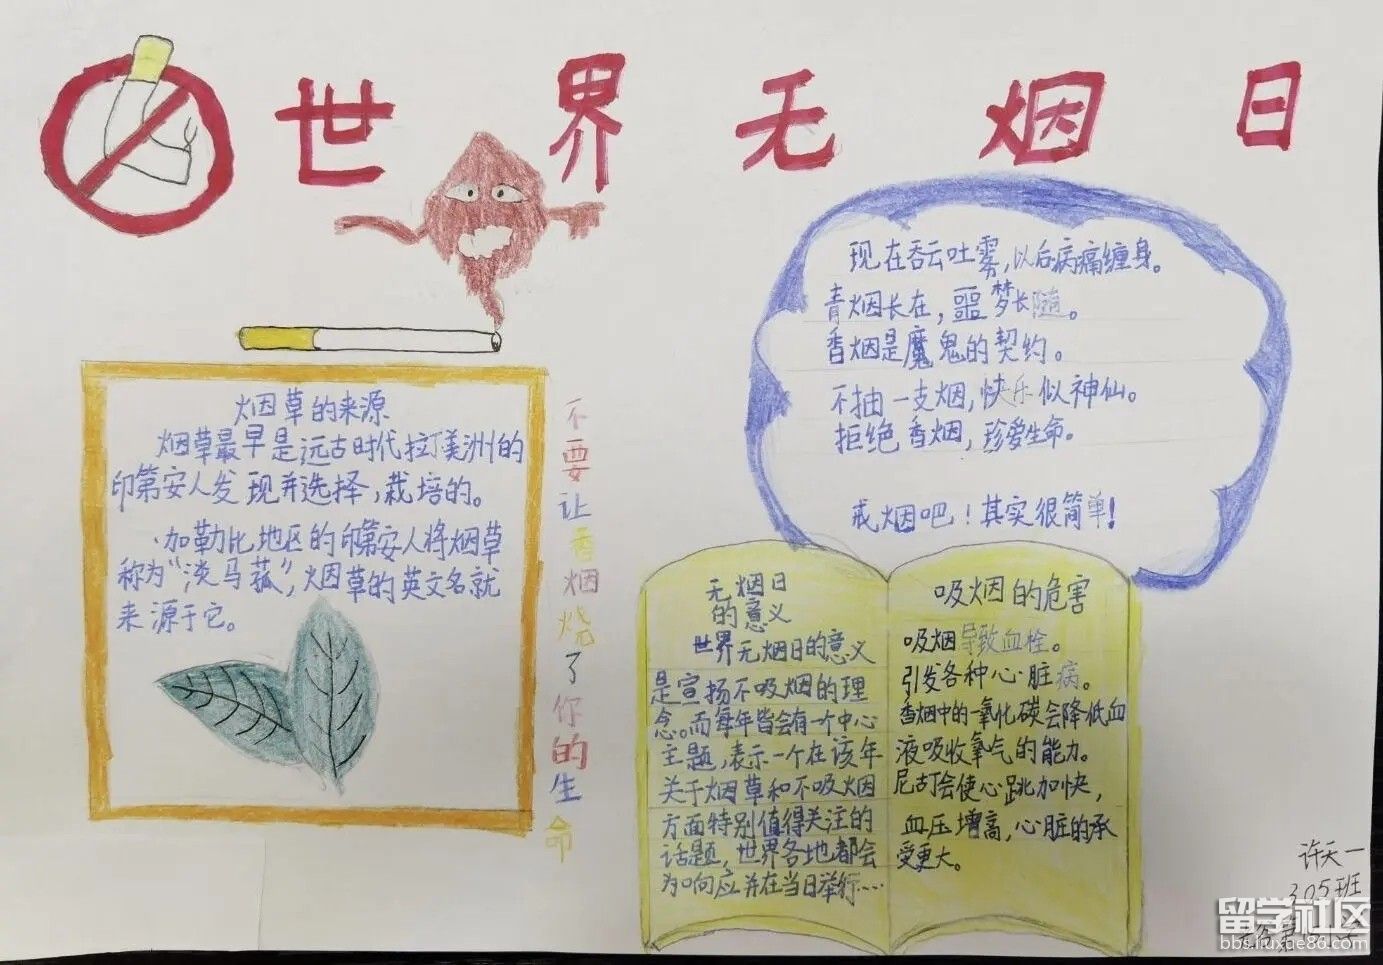 世界无烟日
现在吞云吐雾,以后病痛缠身。
青烟长在,噩梦长随。
香烟是魔鬼的契约。
不抽一支烟,快乐似神仙。
拒绝香烟,珍爱生命。
戒烟吧!其实很简单!
烟草的来源
烟草最早是远古时代拉丁美洲的
印第安人发现并选择,栽培的。
加勒比地区的印第安人将烟草
称为“淡马菰”,烟草的英文名就
来源于它。
不要让香烟烧了你的生命
无烟日
的意义
世界无烟日的意义
是宣扬不吸烟的理
念。而每年皆会有一个中心
主题,表示一个在该年
关于烟草和不吸烟
方面特别值得关注的
话题,世界各地都会
为响应并在当日举行…
吸烟的危害
吸烟导致血栓。
引发各种心脏病。
香烟中的一氧化碳会降低血
液吸收氧气的能力。
尼古丁会使心跳加快,
血压增高,心脏的承
受更大。
许天一
305班
留学社区
bbs.liuxue86.com